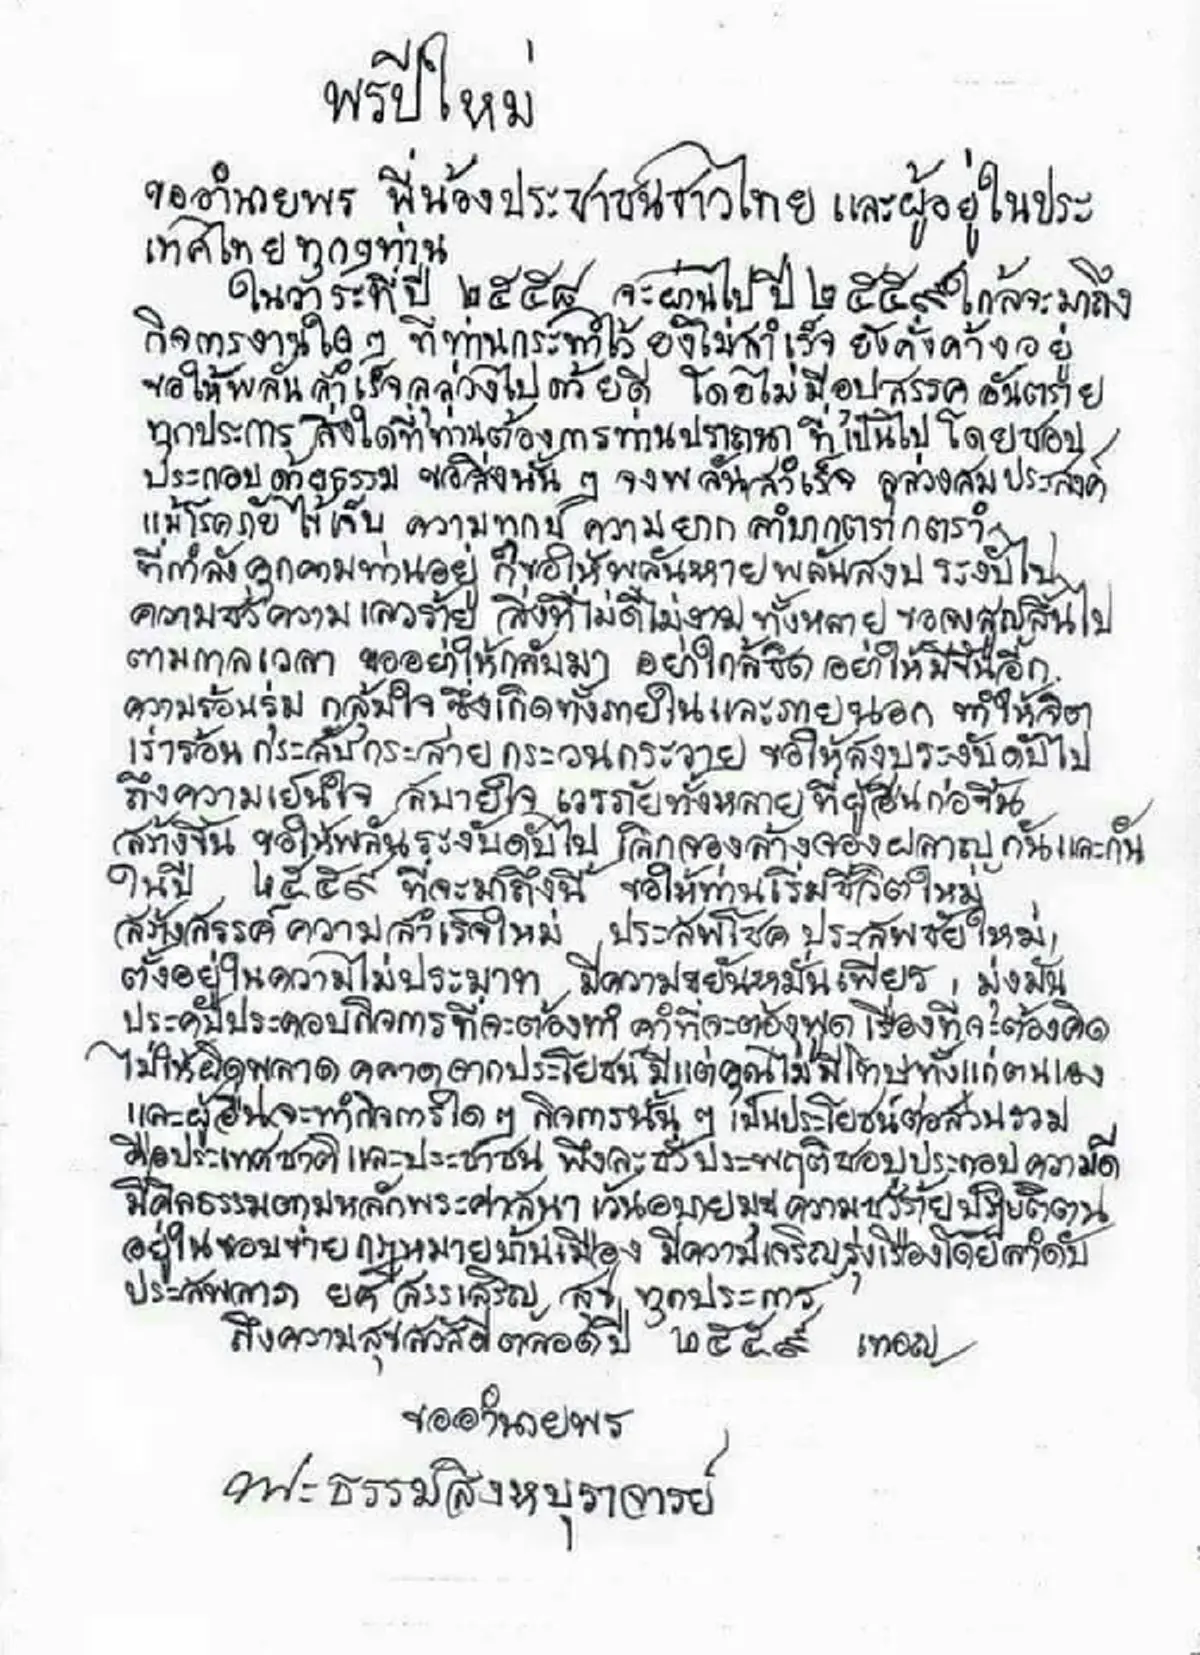 พรปีใหม่
ขออำนวยพร พี่น้องประชาชนชาวไทย และผู้อยู่ในประ
เทศไทยทุกๆท่าน
ในวาระที่ปี ๒๕๕๘ จะผ่านไป ปี ๒๕๕๙ ใกล้จะมาถึง
กิจการงานใด ๆ ที่ท่านกระทำไว้ ยังไม่สำเร็จ ยังคั่งค้างอยู่
ขอให้พลันสำเร็จลุล่วงไปด้วยดี โดยไม่มีอุปสรรค อันตราย
ทุกประการ สิ่งใดที่ท่านต้องการท่านปราถนา ที่เป็นไป โดยชอบ
ประกอบด้วยธรรม ขอสิ่งนั้น ๆ จงพลันสำเร็จ ลุล่วงสมประสงค์
แม้โรคภัยไข้เจ็บ ความทุกข์ ความยาก ลำบากตรากตรำ
ที่กำลังคุกคามท่านอยู่ ก็ขอให้พลันหายพลันสงบ ระงับไป
ความชั่วความเลวร้าย สิ่งที่ไม่ดีไม่งามทั้งหลาย ขอจงสูญสิ้นไป
ตามกาลเวลา ขออย่าให้กลับมา อย่าใกล้ชิด อย่าให้มีขึ้นอีก
ความร้อนรุ่ม กลุ้มใจ ซึ่งเกิดทั้งภายในและภายนอก ทำให้จิต
เร่าร้อน กระสับกระส่าย กระวนกระวาย ขอให้สงบระงับดับไป
ถึงความเย็นใจ สบายใจ เวรภัยทั้งหลาย ที่ผู้อื่นก่อขึ้น
สร้างขึ้น ขอให้พลันระงับดับไป เลิกจองล้างจองผลาญ กันและกัน
ในปี ๒๕๕๙ ที่จะมาถึงนี้ ขอให้ท่านเริ่มชีวิตใหม่
สร้างสรรค์ ความสำเร็จใหม่ ประสพโชค ประสพชัยใหม่
ตั้งอยู่ในความไม่ประมาท มีความขยันหมั่นเพียร มุ่งมั่น
ประคับประคอบกิจการที่จะต้องทำ คำที่จะต้องพูด เรื่องที่จะต้องคิด
ไม่ให้ผิดพลาด คลาดจากประโยชน์ มีแต่คุณไม่มีโทษทั้งแก่ตนเอง
และผู้อื่น จะทำกิจการใด ๆ กิจการนั้น ๆ เป็นประโยชน์ต่อส่วนรวม
คือประเทศชาติและประชาชน พึงละชั่วประพฤติชอบประกอบความดี
มีศีลธรรมตามหลักพระศาสนา เว้นอบายมุข ความชั่วร้าย ปฏิบัติตน
อยู่ในขอบข่าย กฎหมายบ้านเมือง มีความเจริญรุ่งเรืองโดยลำดับ
ประสพลาภ ยศ สรรเสริญ สุข ทุกประการ
ถึงความสุขสวัสดีตลอดปี ๒๕๕๙ เทอญ
ขออำนวยพร
พระธรรมสิงหบุราจารย์